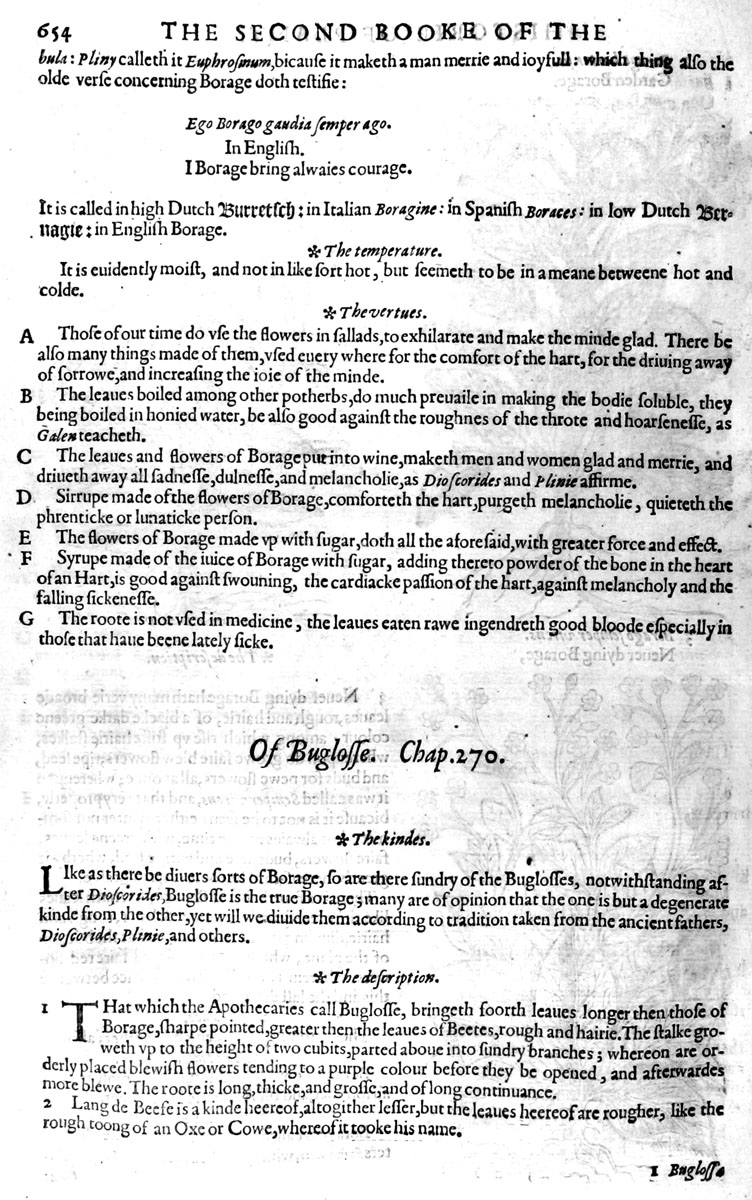 654 THE SECOND BOOKE OF THE
bula: Pliny calleth it Euphroſinum,bicauſe it maketh a man merrie and ioyfull: which thing alſo the
olde verſe concerning Borage doth teſtifie:
Ego Borago gaudia ſemper ago.
In Engliſh.
I Borage bring alwaies courage.
It is called in high Dutch Burretſch: in Italian Boragine: in Spaniſh Boraces: in low Dutch Ber-
nagie: in Engliſh Borage.
✻ The temperature.
It is euidently moiſt, and not in like ſort hot, but ſeemeth to be in a meane betweene hot and
colde.
✻ The vertues.
A Thoſe of our time do vſe the flowers in ſallads,to exhilarate and make the minde glad. There be
alſo many things made of them,vſed euery where for the comfort of the hart, for the driuing away
of ſorrowe,and increaſing the ioie of the minde.
B The leaues boiled among other potherbs,do much preuaile in making the bodie ſoluble, they
being boiled in honied water, be alſo good againſt the roughnes of the throte and hoarſeneſſe, as
Galen teacheth.
C The leaues and flowers of Borage put into wine,maketh men and women glad and merrie, and
driueth away all ſadneſſe,dulneſſe,and melancholie,as Dioſcorides and Plinie affirme.
D Sirrupe made of the flowers of Borage, comforteth the hart, purgeth melancholie, quieteth the
phrenticke or lunaticke perſon.
E The flowers of Borage made vp with ſugar,doth all the aforeſaid,with greater force and effect.
F Syrupe made of the iuice of Borage with ſugar, adding thereto powder of the bone in the heart
of an Hart,is good againſt ſwouning, the cardiacke paſſion of the hart,againſt melancholy and the
falling ſickeneſſe.
G The roote is not vſed in medicine, the leaues eaten rawe ingendreth good bloode eſpecially in
thoſe that haue beene lately ſicke.
Of Bugloſſe. Chap.270.
✻ The kindes.
LIke as there be diuers ſorts of Borage, ſo are there ſundry of the Bugloſſes, notwithſtanding af-
ter Dioſcorides,Bugloſſe is the true Borage; many are of opinion that the one is but a degenerate
kinde from the other,yet will we diuide them according to tradition taken from the ancient fathers,
Dioſcorides,Plinie,and others.
✻ The deſcription.
1 THat which the Apothecaries call Bugloſſe, bringeth foorth leaues longer then thoſe of
Borage,ſharpe pointed,greater then the leaues of Beetes,rough and hairie. The ſtalke gro-
weth vp to the height of two cubits,parted aboue into ſundry branches; whereon are or-
derly placed blewiſh flowers tending to a purple colour before they be opened, and afterwardes
more blewe. The roote is long,thicke,and groſſe,and of long continuance.
2 Lang de Beefe is a kinde heereof,altogither leſſer,but the leaues heereof are rougher, like the
rough toong of an Oxe or Cowe,whereof it tooke his name.
1 Bugloſſa